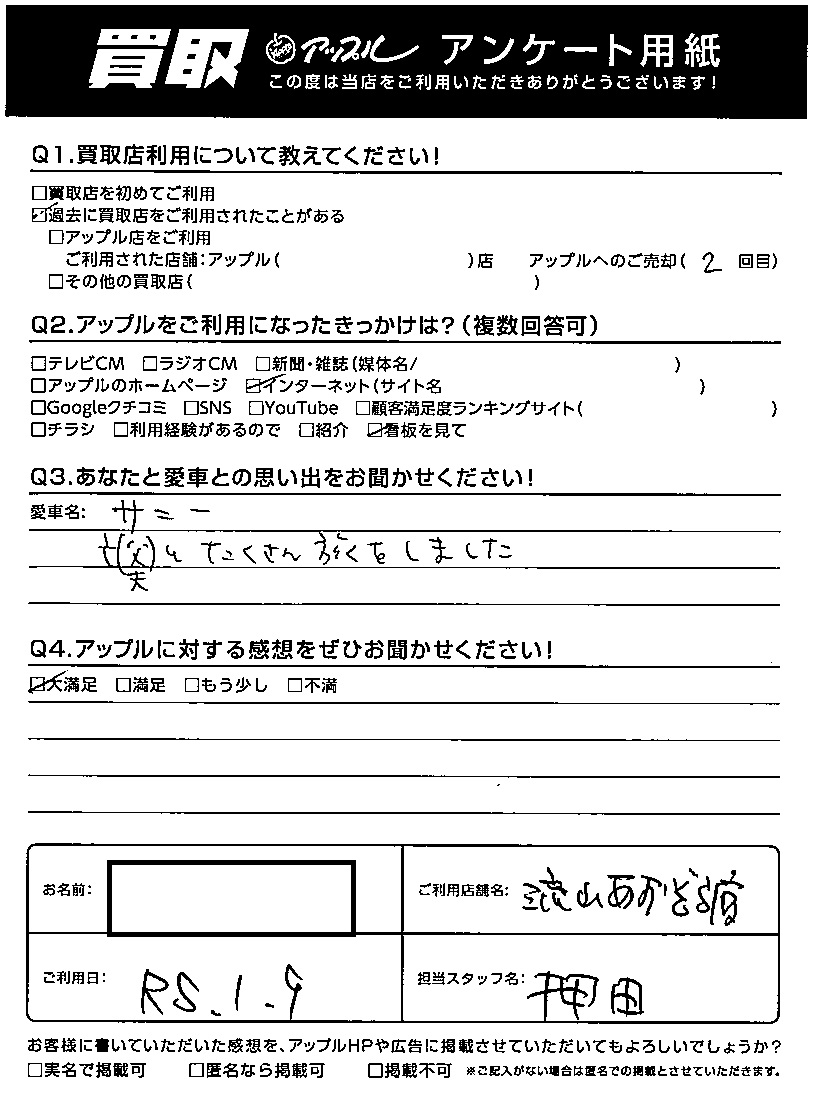 買取 アップル アンケート用紙
この度は当店をご利用いただきありがとうございます!
Q1.買取店利用について教えてください!
□買取店を初めてご利用
☑過去に買取店をご利用されたことがある
□アップル店をご利用
ご利用された店舗:アップル( )店 アップルへのご売却( 2 回目)
□その他の買取店( )
Q2.アップルをご利用になったきっかけは?(複数回答可)
□テレビCM □ラジオCM □新聞・雑誌(媒体名/ )
□アップルのホームページ ☑インターネット(サイト名 )
□Googleクチコミ □SNS □YouTube □顧客満足度ランキングサイト( )
□チラシ □利用経験があるので □紹介 ☑看板を見て
Q3.あなたと愛車との思い出をお聞かせください!
愛車名: サニー
たくさん旅をしました
Q4.アップルに対する感想をぜひお聞かせください!
☑大満足 □満足 □もう少し □不満
お名前:
ご利用店舗名: 流山おおたかの森
ご利用日: R5.1.9
担当スタッフ名: 押田
お客様に書いていただいた感想を、アップルHPや広告に掲載させていただいてもよろしいでしょうか?
□実名で掲載可 □匿名なら掲載可 □掲載不可 ※ご記入がない場合は匿名での掲載とさせていただきます。